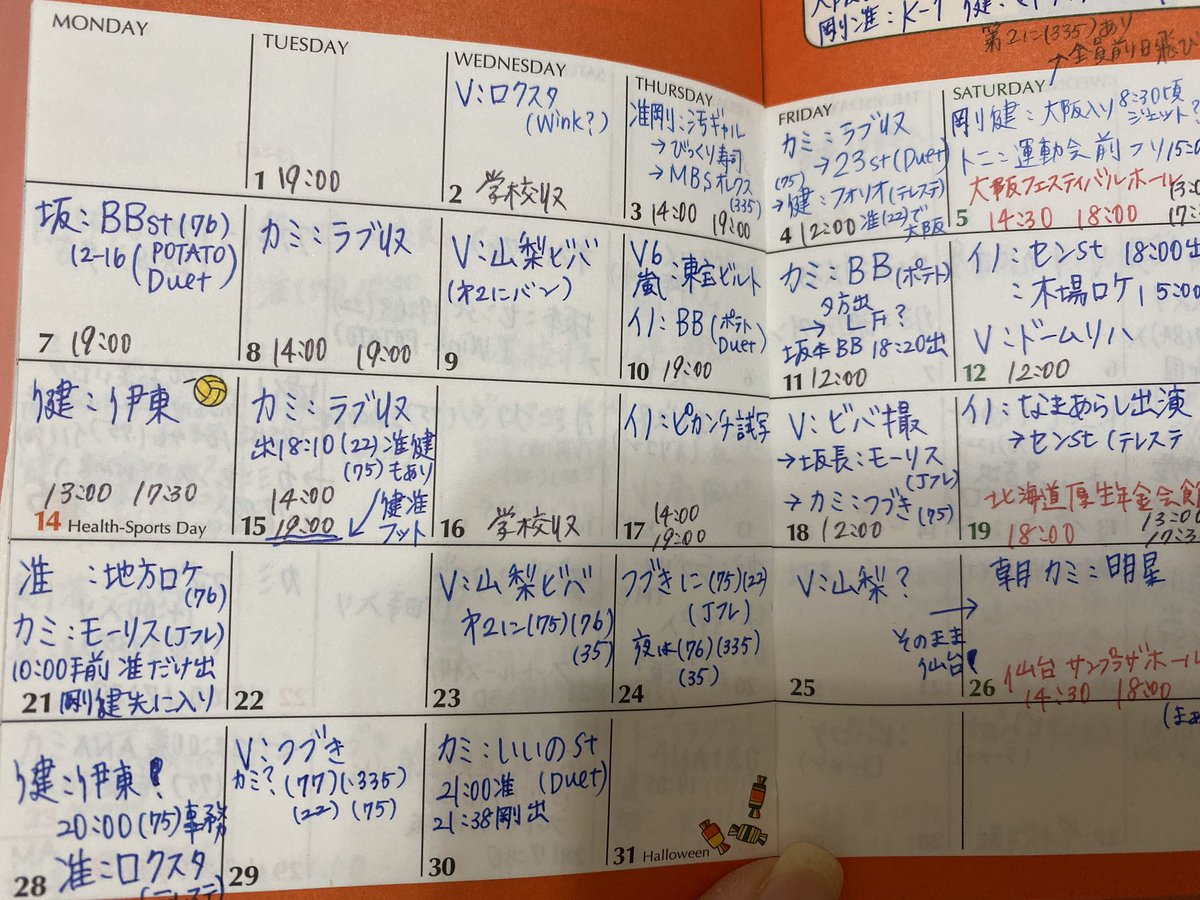 剛准：K-1 健：
第2に(335)あり
→全員前日飛び
MONDAY
TUESDAY
WEDNESDAY
THURSDAY
FRIDAY
SATURDAY
1 19:00
V:ロクスタ
(Wink?)
2 学校収
准剛：汚ギャル
→びっくり寿司
→MBSオレクス
(335)
3 14:00 19:00
カミ：ラブリス
→23st(Duet)
(75)
→健：フォリオ(テレステ)
准(22)で
大阪
4 12:00
剛健：大阪入り 8:30頃
ジェット?
トニ：運動会前フリ 15:0
大阪フェスティバルホール
5 14:30 18:00
坂：BBst(76)
12-16(POTATO
Duet)
7 19:00
カミ：ラブリス
8 14:00 19:00
V:山梨ビバ
(才2にバン)
9
V6
嵐：東宝ビルト
イノ：BB(ポテト
Duet)
10 19:00
カミ：BB(ポテト)
夕方出
坂本BB 18:20出
11 12:00
イノ：センSt 18:00出
：木場ロケ 15:00
V:ドームリハ
12 12:00
健：伊東
13:00 17:30
14 Health-Sports Day
カミ：ラブリス
出18:10(22)准健
(75)もあり
14:00
15 19:00
健准
フット
16 学校収
イノ：ピカンチ試写
14:00
17 19:00
V:ビバ撮
→坂長：モーリス
(Jフレ)
→カミ：つづき(75)
18 12:00
イノ：なまあらし出演
→センSt(テレステ
北海道厚生年金会館
13:00
19 18:00 17:3
准：地方ロケ
(76)
カミ：モーリス(Jフレ)
10:00手前 准だけ出
21 剛健先に入り
22
V:山梨ビバ
才2に(75)(76)
(35)
23
つづきに(75)(22)
(Jフレ)
夜は(76)(335)
(35)
24
V:山梨?
そのまま
仙台!
25
→ 朝カミ：明星
仙台サンプラザホール
26 14:30 18:00
健：伊東!
20:00(75)事務
准：ロクスタ
28
V:つづき
カミ?(77)(335)
(22)(75)
29
カミ：いいのSt
21:00准(Duet)
21:38剛出
30
31 Halloween